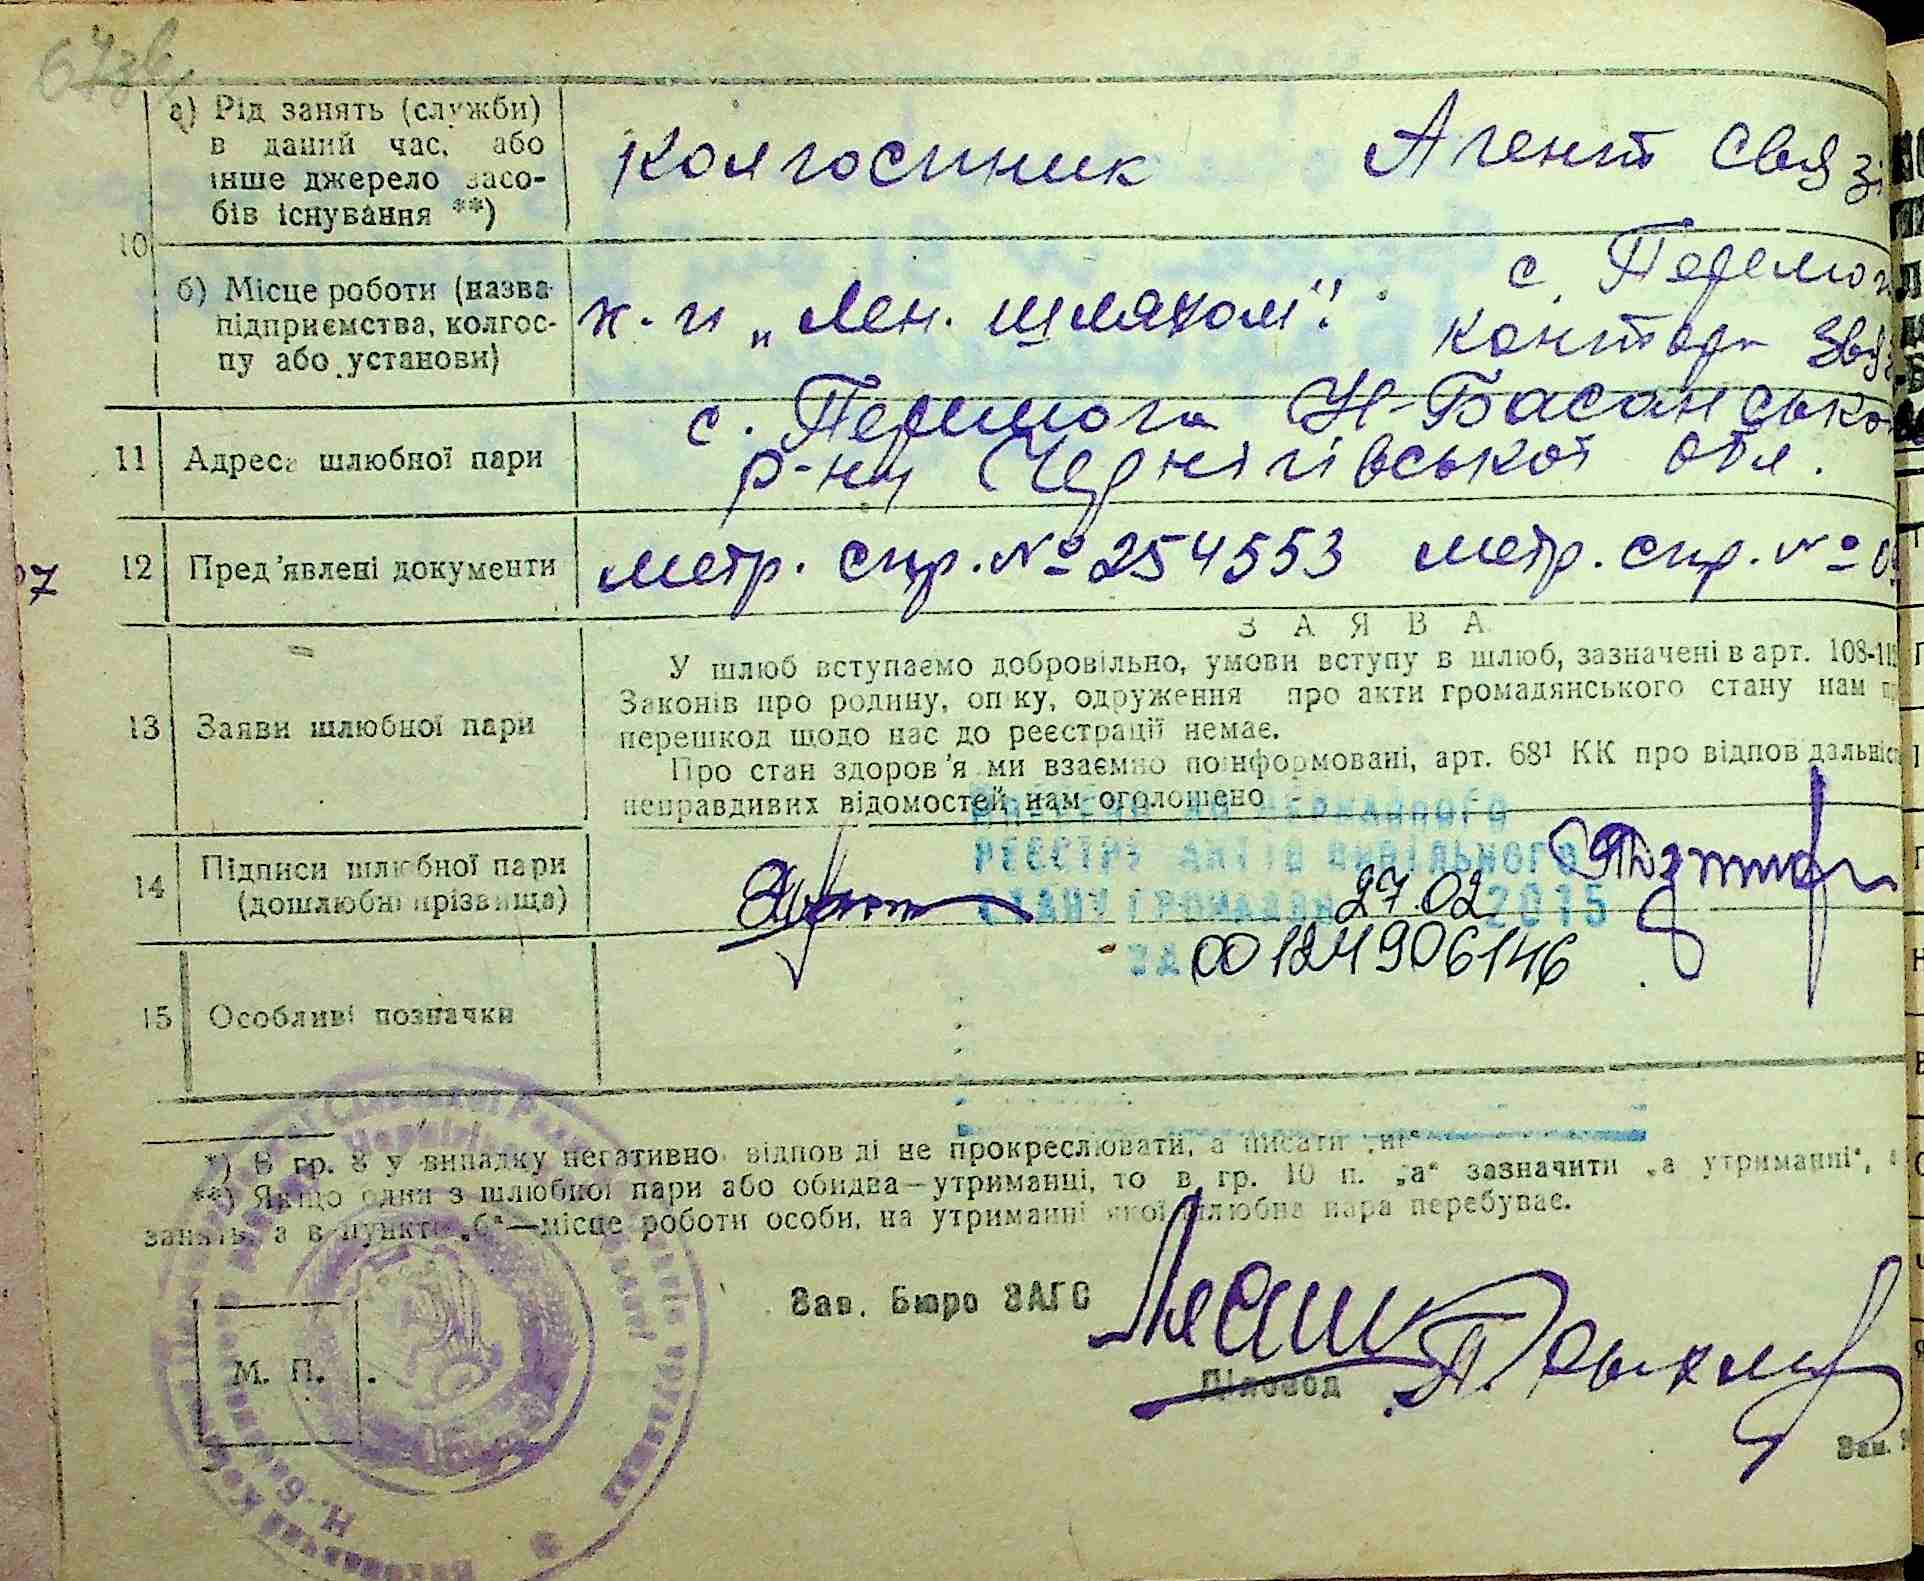 67зв
10
а) Рід занять (служби)
в даний час, або
інше джерело засо-
бів існування **)
Колгоспник Агент Связі
б) Місце роботи (назва
підприємства, колгос-
пу або установи)
к-п „Лен. шляхом".
с. Перемог
контора Звяз
11 Адреса шлюбної пари
с. Перемога Н-Басансько
р-ну Чернігівської обл.
12 Пред'явлені документи
метр. спр. № 254553 метр. спр. №
7
13 Заяви шлюбної пари
ЗАЯВА
У шлюб вступаємо добровільно, умови вступу в шлюб, зазначені в арт. 108-11
Законів про родину, опіку, одруження про акти громадянського стану нам
перешкод щодо нас до реєстрації немає.
Про стан здоров'я ми взаємно поінформовані, арт. 68¹ КК про відповідальніс
неправдивих відомостей нам оголошено
14 Підписи шлюбної пари
(дошлюбні прізвища)
Внесено до Державного
реєстру актів цивільного
стану громадян 27.02 2015
за 00124906146
15 Особливі позначки
*) В гр. 8 у випадку негативної відповіді не прокреслювати, а писати „ні"
**) Якщо один з шлюбної пари або обидва—утриманці, то в гр. 10 п. „а" зазначити „а утриманні",
занять, а в пункті „б"—місце роботи особи, на утриманні якої шлюбна пара перебуває.
Зав. Бюро ЗАГС
Діловод
М. П.
Зав.